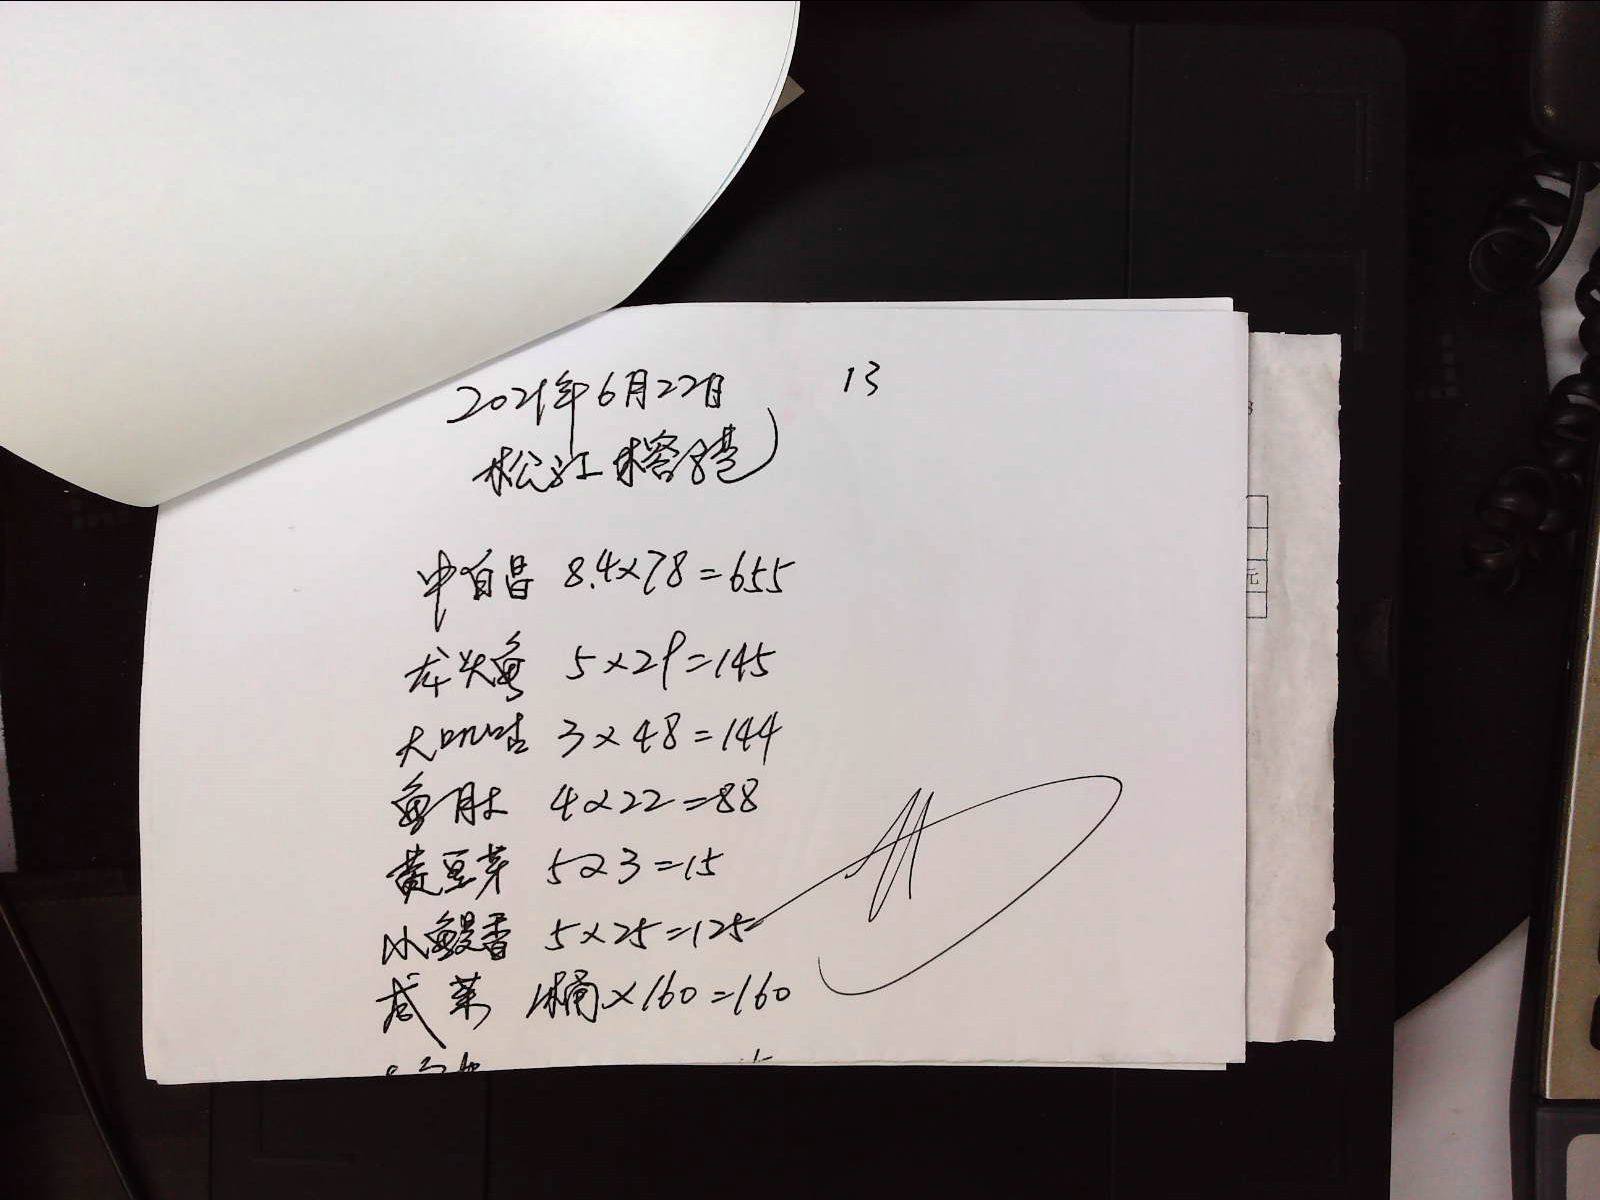 2021年6月22日 13
松江榕港
中白昌 8.4×78=655
龙头鱼 5×29=145
大叽咕 3×48=144
鱼肚 4×22=88
黄豆芽 5×3=15
小鳗香 5×25=125
咸菜 1桶×160=160
元